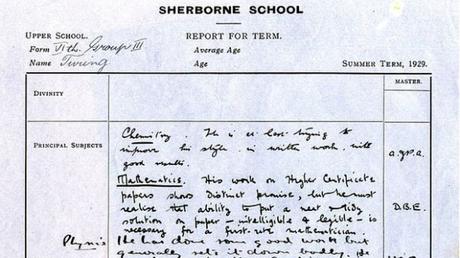 SHERBORNE SCHOOL
UPPER SCHOOL.
REPORT FOR TERM.
Form VIth. Group III
Average Age
Name Turing
Age
SUMMER TERM, 1929.
MASTER.
DIVINITY
PRINCIPAL SUBJECTS
Chemistry. He is at last trying to
improve his style in written work with
good results.
A.J.P.A.
Mathematics. His work on Higher Certificate
papers shows distinct promise, but he must
realise that ability to put a neat & tidy
solution on paper - intelligible & legible - is
necessary for a first-rate mathematician.
D.B.E.
Physics
He has done some good work but
generally sets it down badly. He